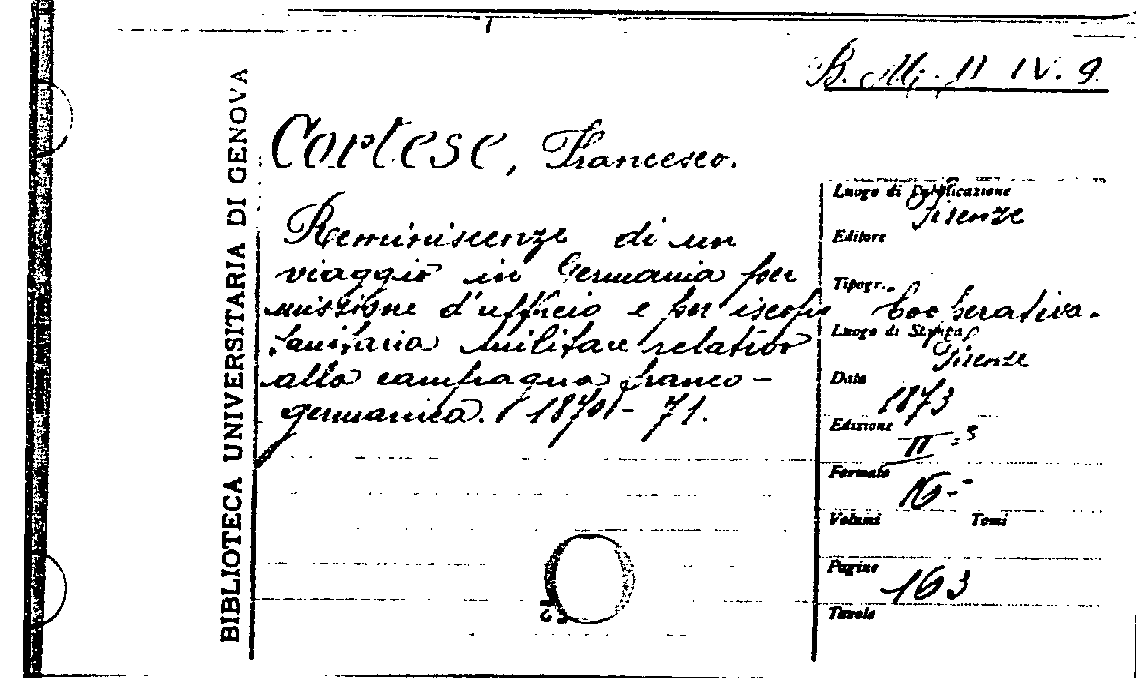 B. M. II IV. 9
BIBLIOTECA UNIVERSITARIA DI GENOVA
Cortese, Francesco.
Reminiscenze di un
viaggio in Germania per
missione d'ufficio e per iscopi
sanitaria militare relativo
alla campagna franco-
germanica. 1870-71.
Luogo di Pubblicazione
Firenze
Editore
Tipogr.
Cooperativa.
Luogo di Stampa
Firenze
Data
1873
Edizione
II
Formato
16-
Volumi Tomi
Pagine
163
Tavole